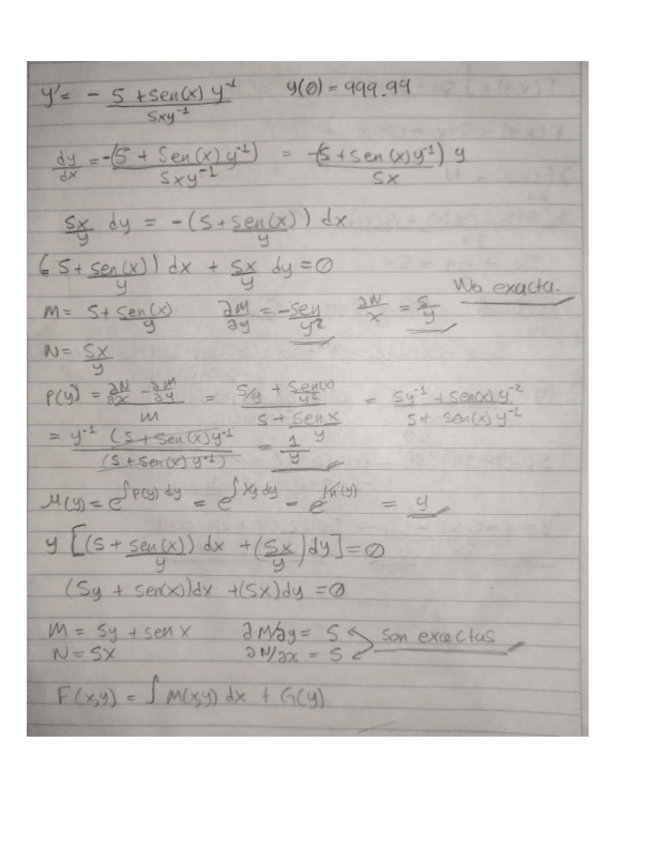 y' = - 5 + sen(x) y⁻¹ / 5xy⁻¹    y(0) = 999.99
dy/dx = -(5 + Sen(x) y⁻¹) / 5xy⁻¹ = -(5 + sen(x) y⁻¹) y / 5x
5x/y dy = -(5 + sen(x)/y) dx
(5 + sen(x)/y) dx + 5x/y dy = 0
No exacta.
M = 5 + sen(x)/y    ∂M/∂y = -sen/y²    ∂N/x = 5/y
N = 5x/y
P(y) = (∂N/∂x - ∂M/∂y) / M = (5/y + sen(x)/y²) / (5 + sen x/y) = (5y⁻¹ + sen(x) y⁻²) / (5 + sen(x) y⁻¹)
= y⁻¹ (5 + sen(x) y⁻¹) / (5 + sen(x) y⁻¹) = 1/y
M(y) = e^∫P(y) dy = e^∫1/y dy - e^ln(y) = y
y [(5 + sen(x)/y) dx + (5x/y) dy] = 0
(5y + sen(x)) dx + (5x) dy = 0
M = 5y + sen x    ∂M/∂y = 5    son exactas
N = 5x    ∂N/∂x = 5
F(x,y) = ∫ M(x,y) dx + G(y)